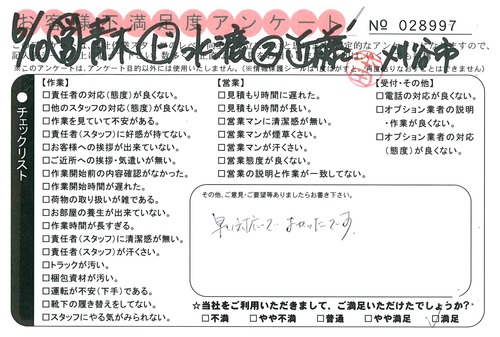 お客様不満足度アンケート
No 028997
6/10 図 青木 ロ 水渡 ② 近藤 刈谷市
※このアンケートは、アンケート目的以外には使用いたしません。
チェックリスト
【作業】
□責任者の対応(態度)が良くない。
□他のスタッフの対応(態度)が良くない。
□作業を見ていて不安がある。
□責任者(スタッフ)に好感が持てない。
□お客様への挨拶が出来ていない。
□ご近所への挨拶・気遣いが無い。
□作業開始前の内容確認がなかった。
□作業開始時間が遅れた。
□荷物の取り扱いが雑である。
□お部屋の養生が出来ていない。
□作業時間が長すぎる。
□責任者(スタッフ)に清潔感が無い。
□責任者(スタッフ)が汗くさい。
□トラックが汚い。
□梱包資材が汚い。
□運転が不安(下手)である。
□靴下の履き替えをしてない。
□スタッフにやる気がみられない。
【営業】
□見積もり時間に遅れた。
□見積もり時間が長い。
□営業マンに清潔感が無い。
□営業マンが煙草くさい。
□営業マンが汗くさい。
□営業態度が良くない。
□営業の説明と作業が一致してない。
【受付・その他】
□電話の対応が良くない。
□オプション業者の説明
・作業が良くない。
□オプション業者の対応
(態度)が良くない。
その他、ご意見・ご要望等ありましたらお書き下さい。
早い対応で よかったです。
☆当社をご利用いただきまして、ご満足いただけたでしょうか?
□不満 □やや不満 □普通 □やや満足 □満足